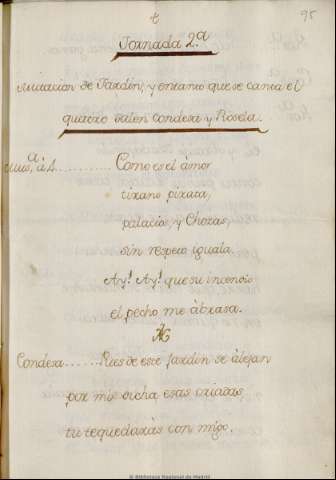 95
Jornada 2.ª
Mutacion de Jardin, y entanto que se canta el
quatro salen Condesa y Rosela.
Mus.ª à 4. Como es el àmor
tirano pirata,
palacios, y Chozas,
sin respeto iguala.
Ay! Ay! que su incendio
el pecho me àbrasa.
Condesa. Pues de este Jardin se àlejan
por mi dicha esas criadas,
tu te quedaràs con migo.
© Biblioteca Nacional de Madrid